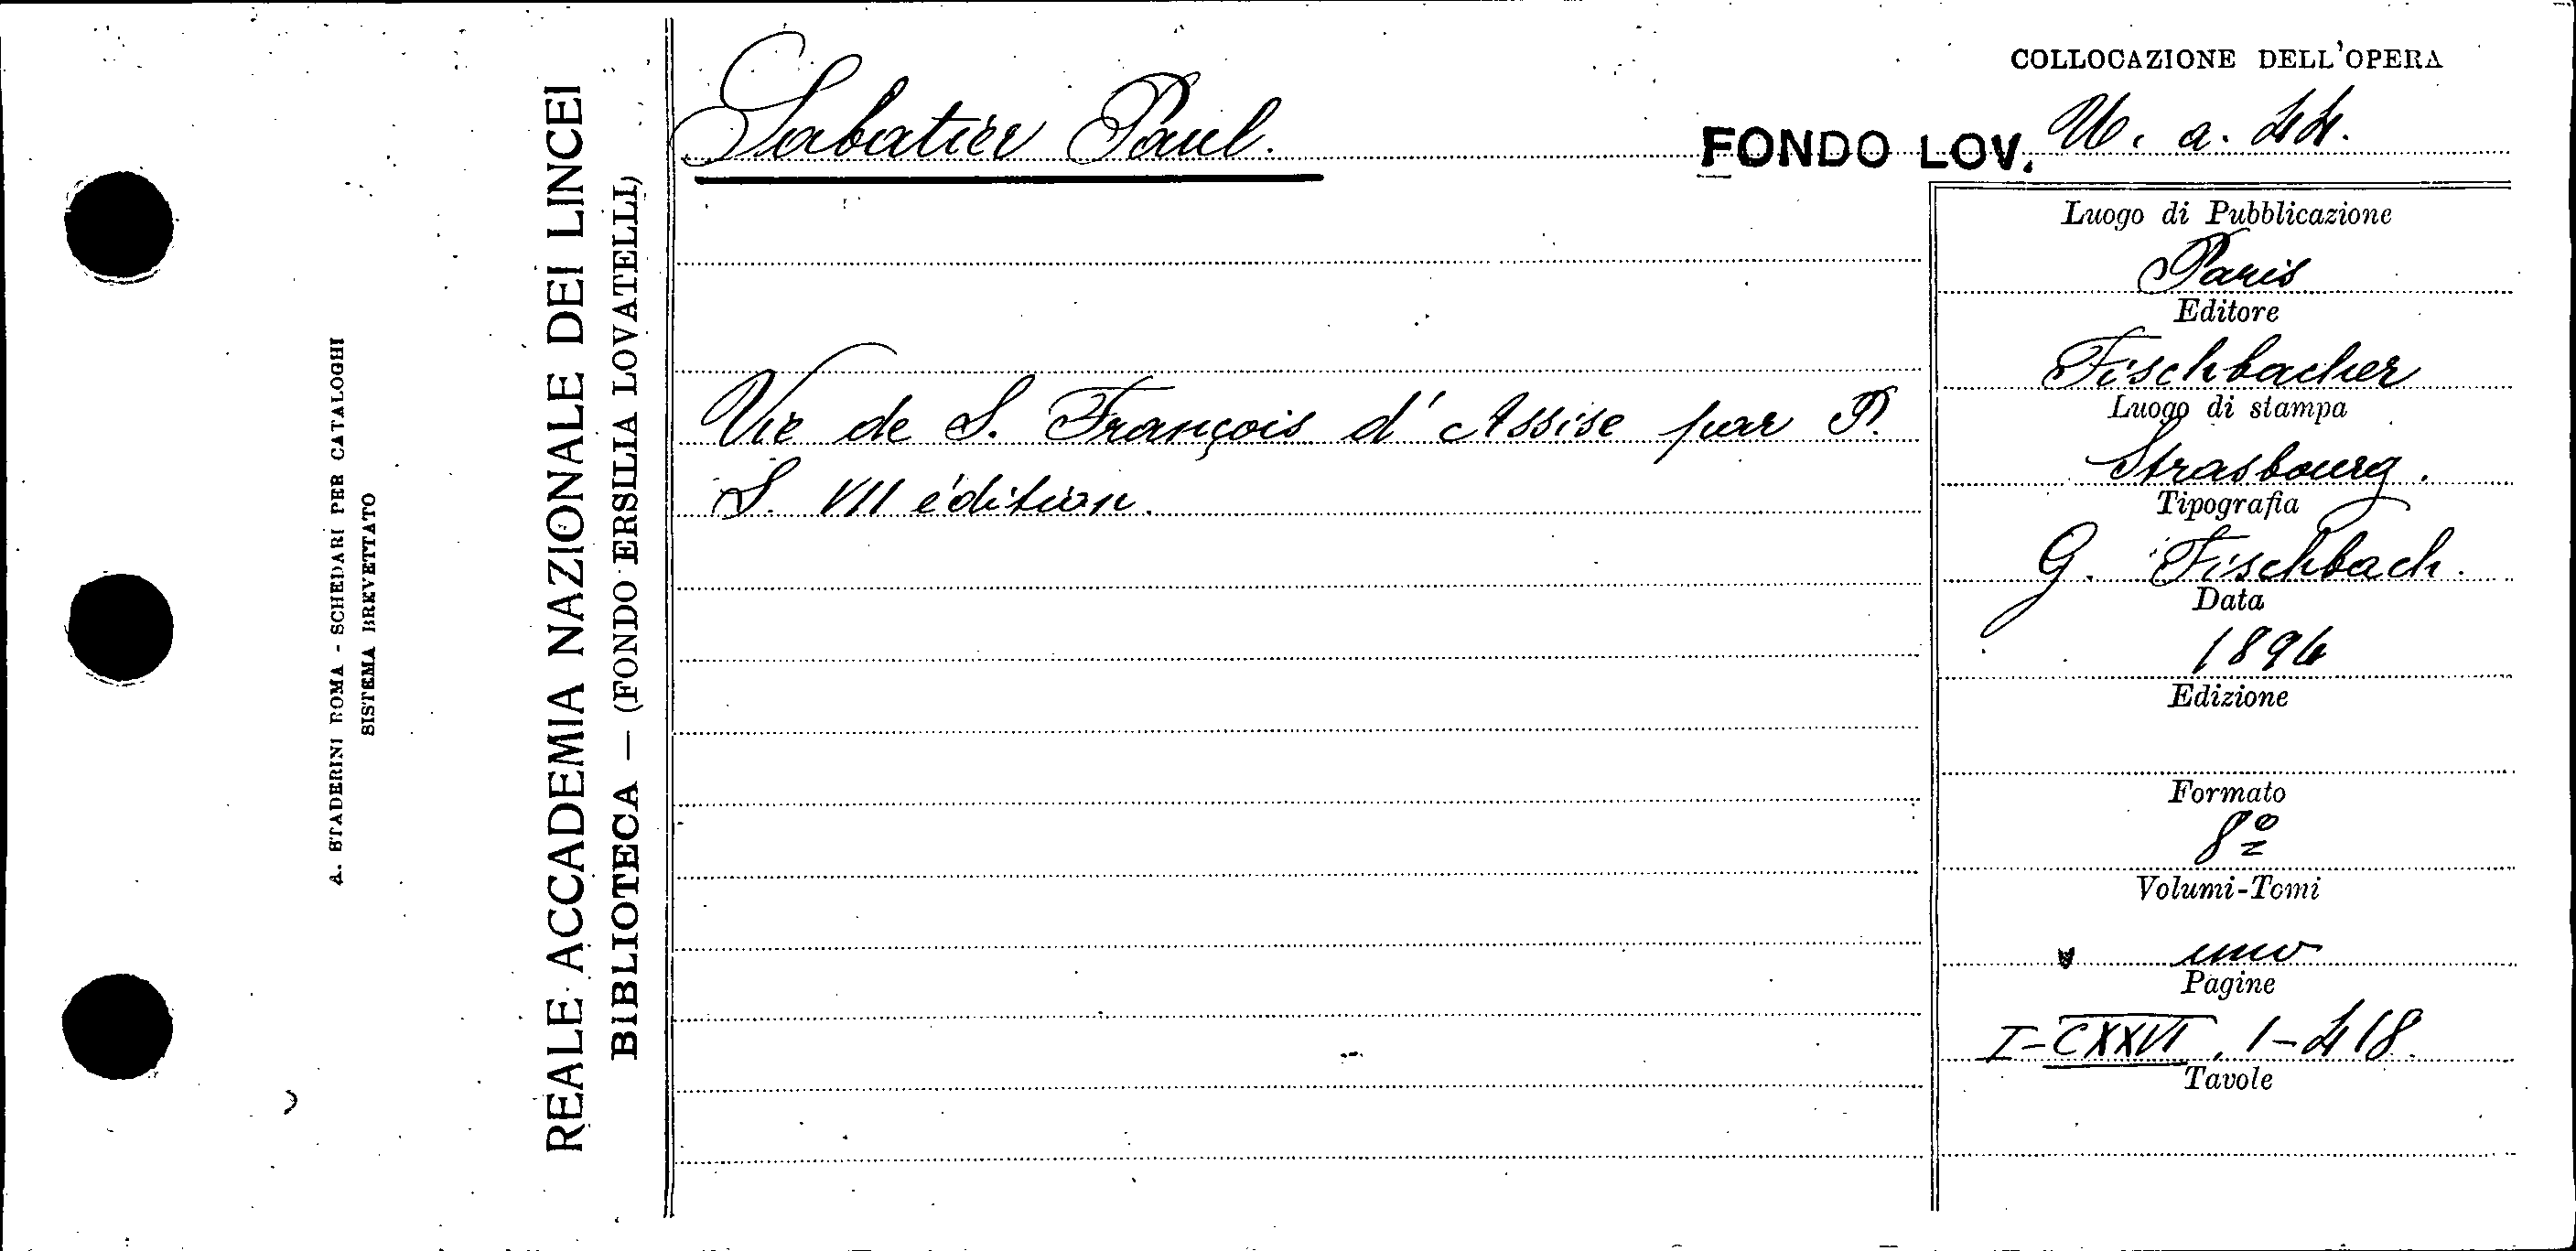 COLLOCAZIONE DELL'OPERA
Sabatier Paul.
FONDO LOV. U. a. 44.
Vie de S. François d'Assise par P.
S. VII édition.
Luogo di Pubblicazione
Paris
Editore
Fischbacher
Luogo di stampa
Strasbourg.
Tipografia
G. Fischbach.
Data
1894
Edizione
Formato
8º
Volumi-Tomi
uno
Pagine
I-CXXVI, 1-418.
Tavole
REALE ACCADEMIA NAZIONALE DEI LINCEI
BIBLIOTECA — (FONDO ERSILIA LOVATELLI)
A. STADERINI ROMA - SCHEDARI PER CATALOGHI
SISTEMA BREVETTATO